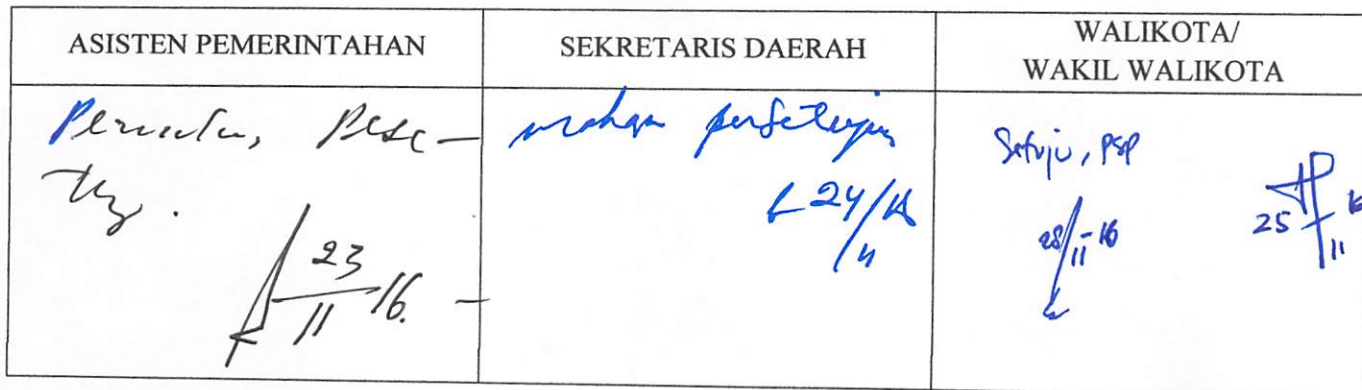 ASISTEN PEMERINTAHAN
SEKRETARIS DAERAH
WALIKOTA/
WAKIL WALIKOTA
mohon persetujuan
24/16
/11
Setuju, PSP
23
11 16.
28/11-16
25 16
11